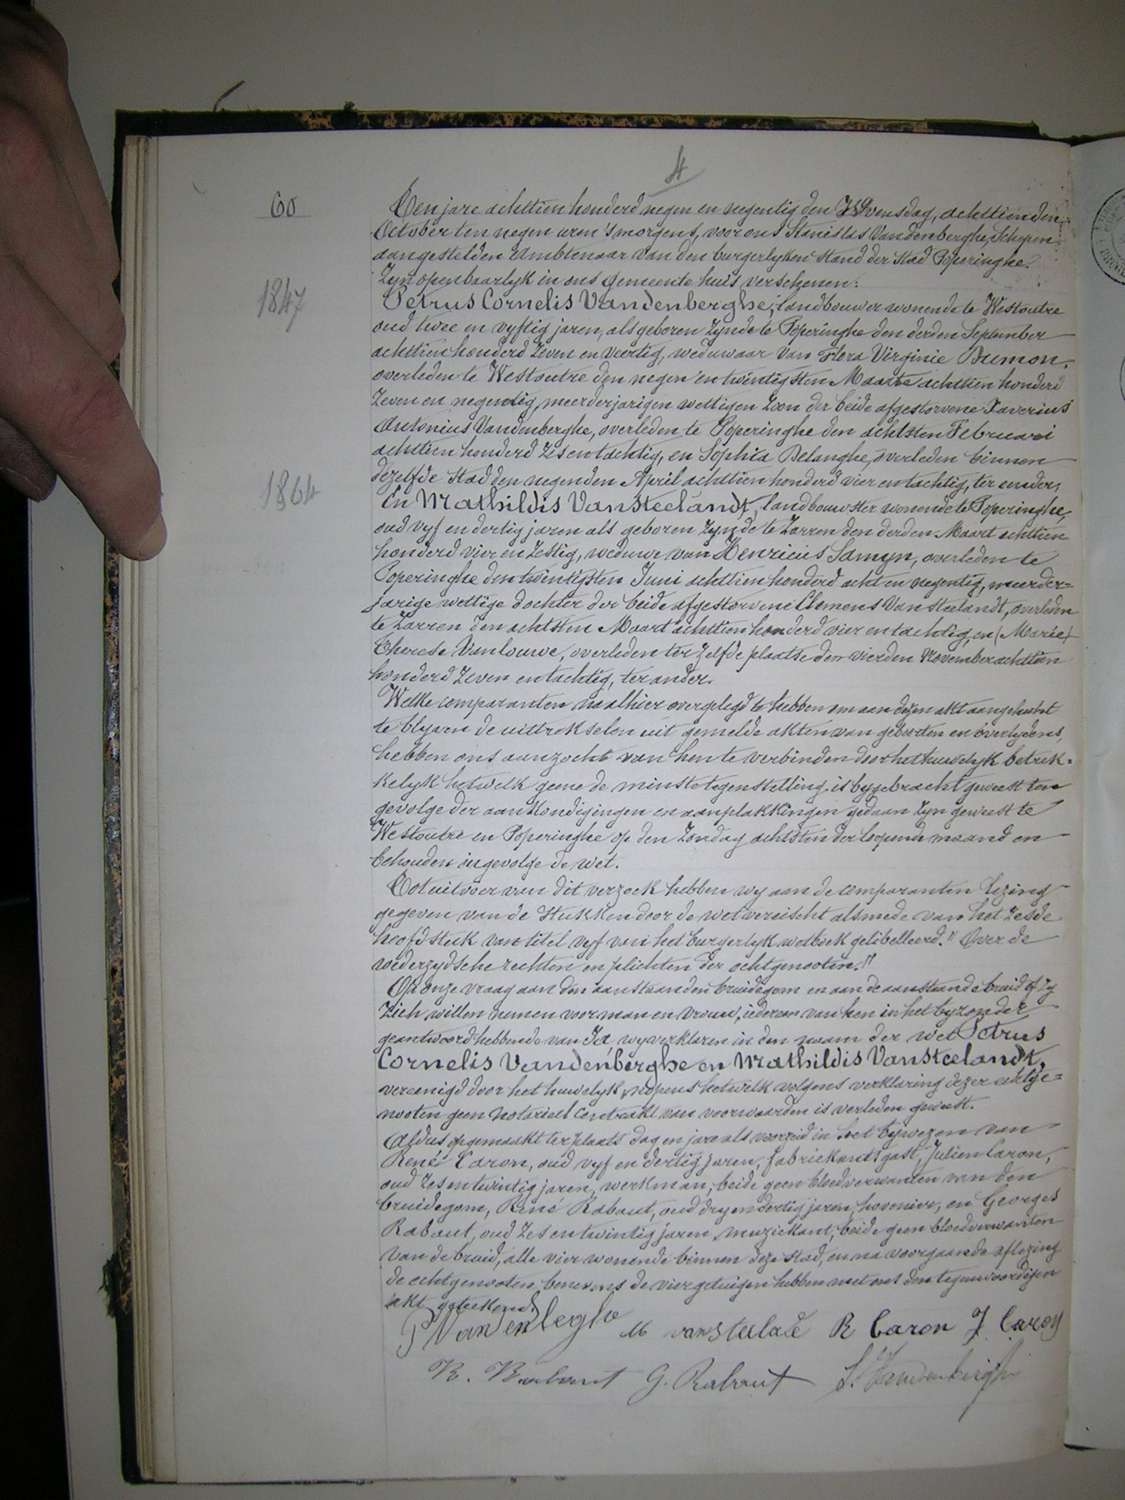 4
60
Ten jare achttien honderd negen en negentig den Woensdag, achttienden
October ten negen uren 's morgens, voor ons Stanislas Vandenberghe, Schepen
aangestelden Ambtenaar van den burgerlyken stand der stad Poperinghe.
Zyn openbaarlyk in ons gemeente huis verschenen:
1847
Petrus Cornelis Vandenberghe, landbouwer wonende te Westoutre
oud twee en vyftig jaren, als geboren zynde te Poperinghe den derden September
achttien honderd zeven en veertig, weduwaar van Flora Virginie Dumon,
overleden te Westoutre den negen en twintigsten Maarte achttien honderd
zeven en negentig, meerderjarigen wettigen zoon der beide afgestorvene Xaverius
Antonius Vandenberghe, overleden te Poperinghe den achtsten Februari
achttien honderd zes en tachtig, en Sophia Delanghe, overleden binnen
dezelfde stad den negenden April achttien honderd vier en tachtig, ter eender;
1864
En Mathildis Vansteelandt, landbouwster wonende te Poperinghe,
oud vyf en dertig jaren als geboren zynde te Zarren den derden Maart achttien
honderd vier en zestig, weduwe van Henricus Samyn, overleden te
Poperinghe den twintigsten Juni achttien honderd acht en negentig, meerder=
jarige wettige dochter der beide afgestorvene Clemens Vansteelandt, overleden
te Zarren den achtsten Maart achttien honderd vier en tachtig, en (Marie)
Therese Vanlouwe, overleden ter zelfde plaatse den vierden November achttien
honderd zeven en tachtig, ter ander.
Welke comparanten na alhier overgelegd te hebben om aan dezen akt aangehecht
te blyven de uittrekselen uit gemelde akten van geboorten en overlydens,
hebben ons aanzocht van hen te verbinden door het huwelyk betrek-
kelyk hetwelk geene de minste tegenstelling is bygebracht geweest ten
gevolge der aankondigingen en aanplakkingen gedaan zyn geweest te
Westoutre en Poperinghe op den Zondag achtsten der loopende maand en
behouden ingevolge de wet.
Tot uitvoer van dit verzoek hebben wy aan de comparanten lezing
gegeven van de stukken door de wet vereischt alsmede van het zesde
hoofdstuk van titel vyf van het burgerlyk wetboek gelibelleerd. " Over de
wederzydsche rechten en plichten der echtgenooten."
Op onze vraag aan den aanstaanden bruidegom en aan de aanstaande bruid of zy
zich willen nemen voor man en vrouw, iedereen van hen in het byzonder
geantwoord hebbende van Ja wy verklaren in den naam der wet Petrus
Cornelis Vandenberghe en Mathildis Vansteelandt,
vereenigd door het huwelyk, nopens hetwelk volgens verklaring dezer echtge=
nooten geen notarieel contrakt van voorwaarden is verleden geweest.
Aldus opgemaakt ter plaats dag en jare als voorzeid in het bywezen van
René Caron, oud vyf en dertig jaren, fabriekantsgast, Julien Caron,
oud zes en twintig jaren, werkman, beide geen bloedverwanten van den
bruidegom, René Rabaut, oud dry en dertig jaren, hovenier, en Georges
Rabaut, oud zes en twintig jaren, muziekant, beide geen bloedverwanten
van de bruid, alle vier wonende binnen deze stad, en na voorgaande aflezing
de echtgenooten benevens de vier getuigen hebben met ons den tegenwoordigen
akt geteekend.
P Vandenbeghe M vansteelade R Caron J. Caron
R. Rabaut G. Rabaut S. Vandenberghe